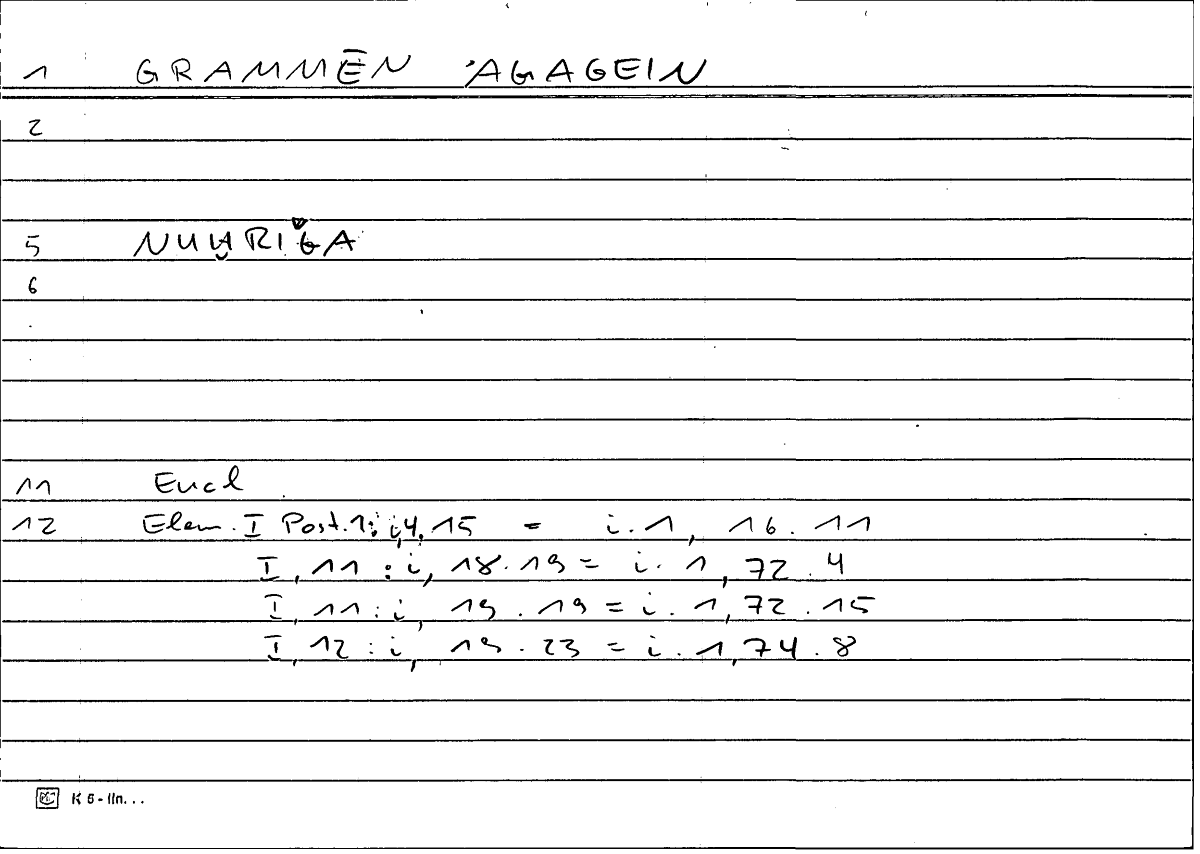 1 GRAMMĒN 'AGAGEIN
2
5 NUḪRIǦA
6
.
.
11 Eucl
12 Elem. I Post. 1: i, 4.15 = i.1, 16.11
I, 11 : i, 18.19 = i.1, 72.4
I, 11 : i, 19.19 = i.1, 72.15
I, 12 : i, 19.23 = i.1, 74.8
K 5 - lin...